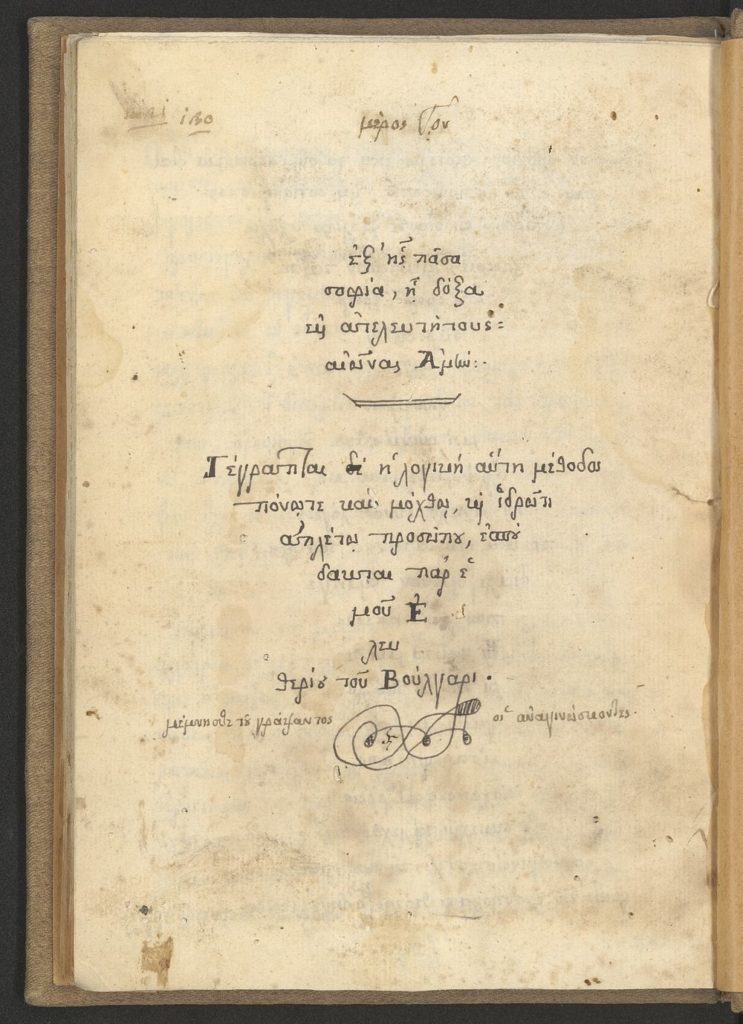 μέρος
ἐξ ἧς πᾶσα
σοφία, ἡ δόξα
εἰς ἀτελευτήτους
αἰῶνας Ἀμὼ:
Γέγραπται δὲ ἡ λογικὴ αὕτη μέθοδος
πόνῳτε καὶ μόχθῳ, κỳ ἱδρῶτι
προσώπου,
παρ' ἐ
μοῦ Ἐ
λευ
θερίου τοῦ Βούλγαρι.
μέμνησθε τοῦ γράψαντος οἱ ἀναγινώσκοντες.